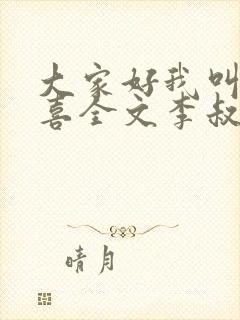 大家好我叫
喜全文李叔
晴月